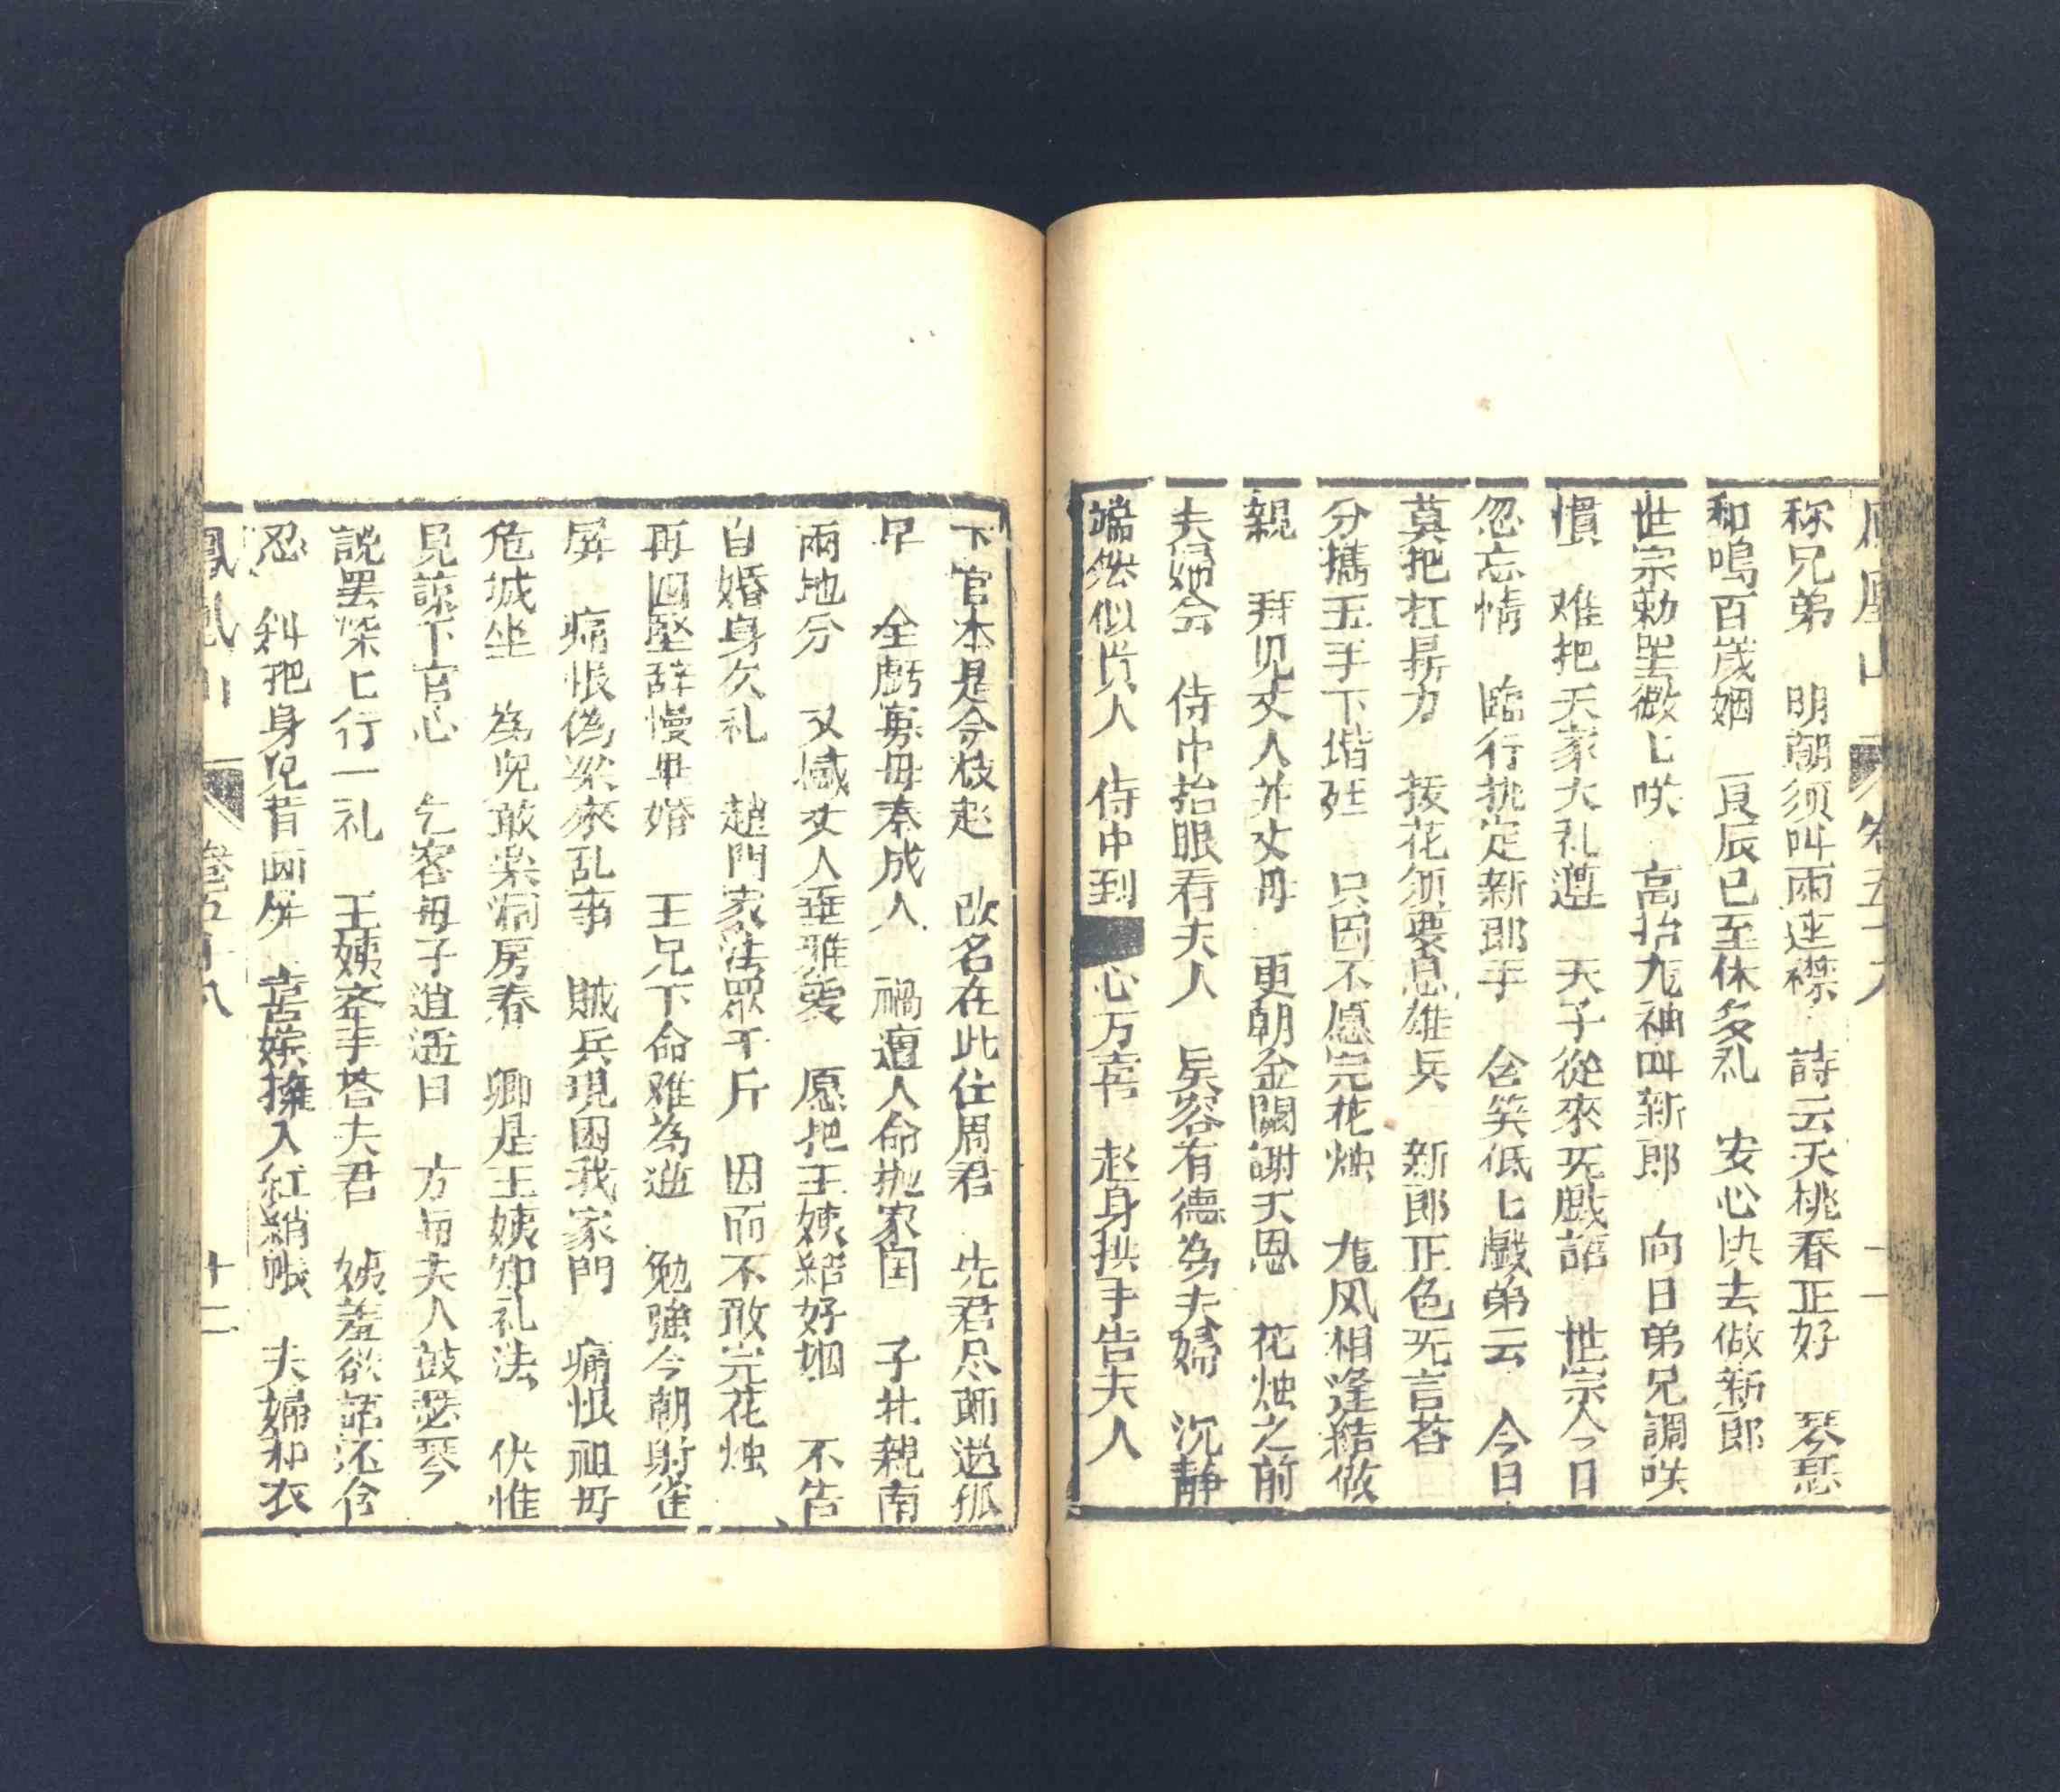 鳳凰山 卷五十八 十一
称兄弟 明朝须叫兩連襟 詩云夭桃春正好 琴瑟
和鳴百歲姻 良辰已至休多礼 安心快去做新郎
世宗勅罢微匕咲 高抬九袖叫新郎 向日弟兄調咲
慣 难把天家大礼遵 天子從來旡戲話 世宗今日
忽忘情 臨行执定新郎手 含笑低匕戲弟云 今日
莫把扛鼎力 扳花须要息雄兵 新郎正色旡言荅
分攜玉手下堦廷 只因不愿完花烛 九风相逢結做
親 拜见丈人并丈母 更朝金闕謝天恩 花烛之前
夫婦会 侍中抬眼看夫人 呉容有德為夫婦 沉静
端然似贤人 侍中到 心万喜 赵身拱手告夫人
下官本是今枝赵 改名在此仕周君 先君尽莭遗孤
早 全虧寡母奉成人 禍遭人命抛家囯 子北親南
兩地分 又慽丈人垂雅愛 愿把王姨紹好姻 不告
自婚身欠礼 趙門家法眾千斤 因而不敢完花烛
再四堅辞慢畢婚 王兄下命难為逆 勉強今朝射雀
屏 痛恨偽梁來乱事 賊兵現困我家門 痛恨祖母
危城坐 為兒敢樂洞房春 卿是王姨知礼法 伏惟
見諒下官心 乞容母子逍遥日 方与夫人鼓瑟琴
說罢深匕行一礼 王姨斉手荅夫君 姨羞欲語还含
忍 斜把身兒背画屏 宫娥擁入紅綃帳 夫婦和衣
鳳凰山 卷五十八 十二